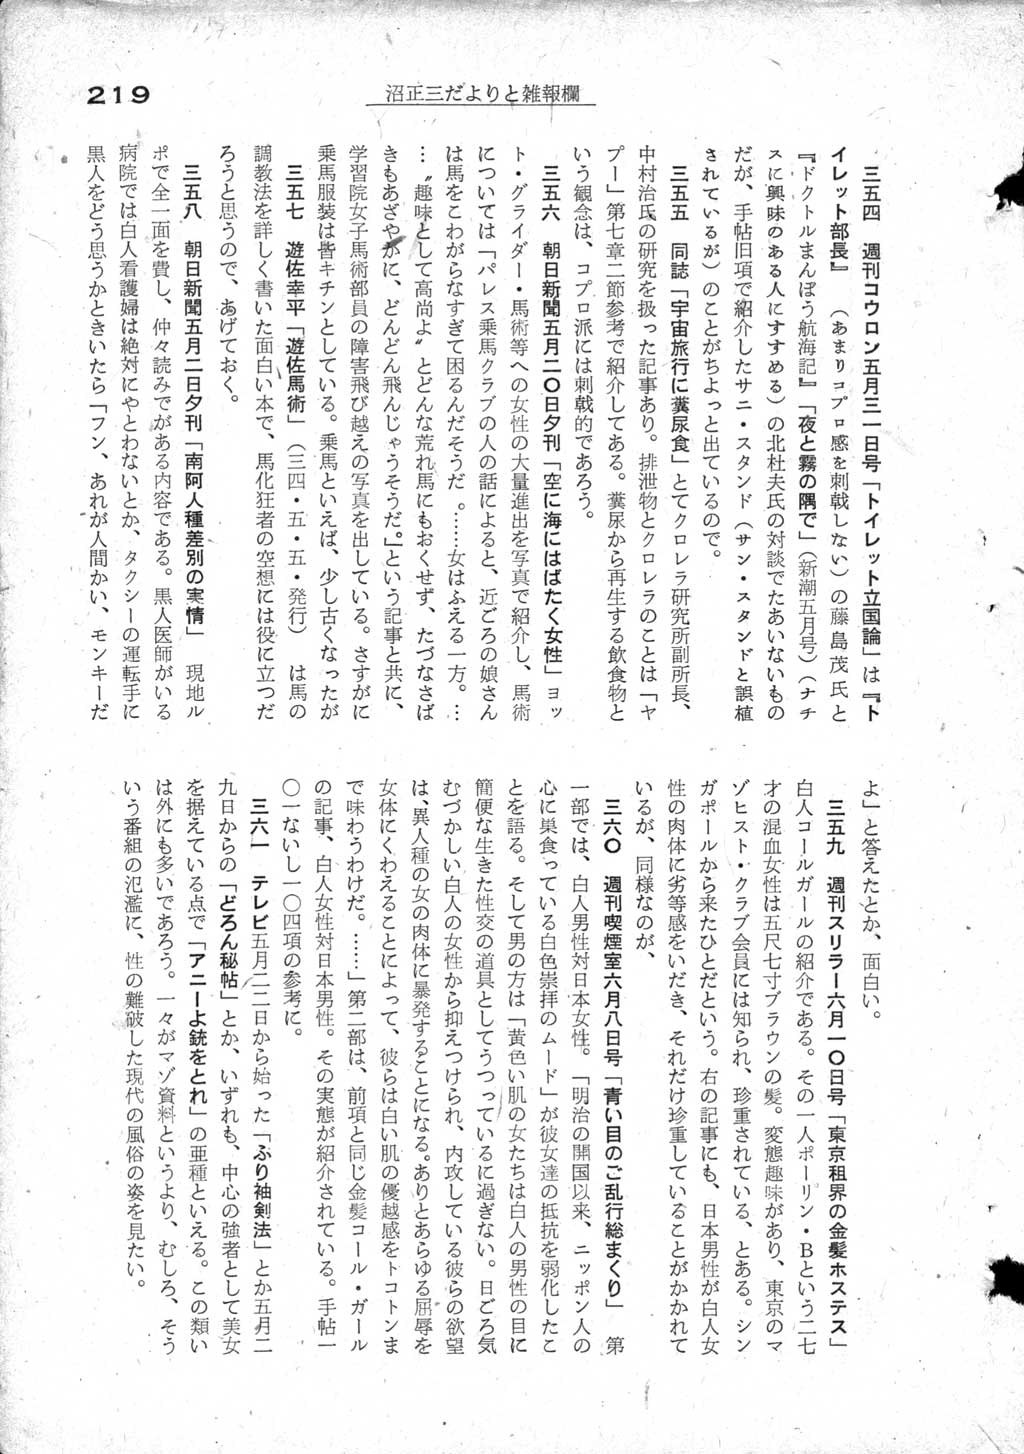 219
沼正三だよりと雑報欄
三五四　週刊コウロン五月三一日号「トイレット立国論」は『ト
イレット部長』　（あまりコプロ感を刺戟しない）の藤島茂氏と
『ドクトルまんぼう航海記』「夜と霧の隅で」（新潮五月号）（ナチ
スに興味のある人にすすめる）の北杜夫氏の対談でたあいないもの
だが、手帖旧項で紹介したサニ・スタンド（サン・スタンドと誤植
されているが）のことがちよっと出ているので。
三五五　同誌「宇宙旅行に糞尿食」とてクロレラ研究所副所長、
中村治氏の研究を扱った記事あり。排泄物とクロレラのことは「ヤ
プー」第七章二節参考で紹介してある。糞尿から再生する飲食物と
いう観念は、コプロ派には刺戟的であろう。
三五六　朝日新聞五月二〇日夕刊「空に海にはばたく女性」ヨッ
ト・グライダー・馬術等への女性の大量進出を写真で紹介し、馬術
については「パレス乗馬クラブの人の話によると、近ごろの娘さん
は馬をこわがらなすぎて困るんだそうだ。……女はふえる一方。…
…〝趣味として高尚よ〟とどんな荒れ馬にもおくせず、たづなさば
きもあざやかに、どんどん飛んじゃうそうだ。」という記事と共に、
学習院女子馬術部員の障害飛び越えの写真を出している。さすがに
乗馬服装は皆キチンとしている。乗馬といえば、少し古くなったが
三五七　遊佐幸平「遊佐馬術」（三四・五・五・発行）　は馬の
調教法を詳しく書いた面白い本で、馬化狂者の空想には役に立つだ
ろうと思うので、あげておく。
三五八　朝日新聞五月二日夕刊「南阿人種差別の実情」　現地ル
ポで全一面を費し、仲々読みでがある内容である。黒人医師がいる
病院では白人看護婦は絶対にやとわないとか、タクシーの運転手に
黒人をどう思うかときいたら「フン、あれが人間かい、モンキーだ
よ」と答えたとか、面白い。
三五九　週刊スリラー六月一〇日号「東京租界の金髪ホステス」
白人コールガールの紹介である。その一人ポーリン・Bという二七
才の混血女性は五尺七寸ブラウンの髪。変態趣味があり、東京のマ
ゾヒスト・クラブ会員には知られ、珍重されている、とある。シン
ガポールから来たひとだという。右の記事にも、日本男性が白人女
性の肉体に劣等感をいだき、それだけ珍重していることがかかれて
いるが、同様なのが、
三六〇　週刊喫煙室六月八日号「青い目のご乱行総まくり」　第
一部では、白人男性対日本女性。「明治の開国以来、ニッポン人の
心に巣食っている白色崇拝のムード」が彼女達の抵抗を弱化したこ
とを語る。そして男の方は「黄色い肌の女たちは白人の男性の目に
簡便な生きた性交の道具としてうつっているに過ぎない。日ごろ気
むづかしい白人の女性から抑えつけられ、内攻している彼らの欲望
は、異人種の女の肉体に暴発することになる。ありとあらゆる屈辱を
女体にくわえることによって、彼らは白い肌の優越感をトコトンま
で味わうわけだ。……」第二部は、前項と同じ金髪コール・ガール
の記事、白人女性対日本男性。その実態が紹介されている。手帖一
〇一ないし一〇四項の参考に。
三六一　テレビ五月二二日から始った「ふり袖剣法」とか五月二
九日からの「どろん秘帖」とか、いずれも、中心の強者として美女
を据えている点で「アニーよ銃をとれ」の亜種といえる。この類い
は外にも多いであろう。一々がマゾ資料というより、むしろ、そう
いう番組の氾濫に、性の難破した現代の風俗の姿を見たい。